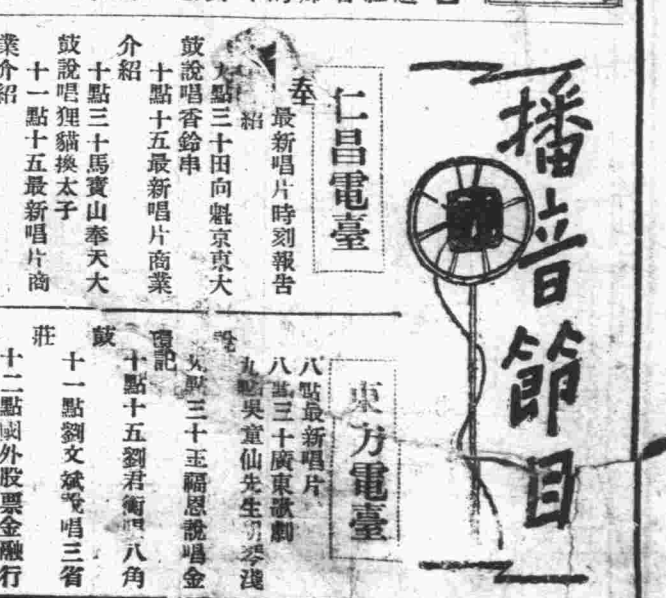 播音節目
仁昌電臺
奉
最新唱片時刻報告
紹
九點三十田向魁京東大
鼓說唱香鈴串
十點十五最新唱片商業
介紹
十點三十馬寶山奉天大
鼓說唱狸貓換太子
十一點十五最新唱片商
業介紹
東方電臺
八點最新唱片
八點三十廣東歌劇
九點吳童仙先生胡琴淺
說
九點三十王福恩說唱金
環記
十點十五劉君衡唱八角
鼓
十一點劉文斌說唱三省
莊
十二點國外股票金融行